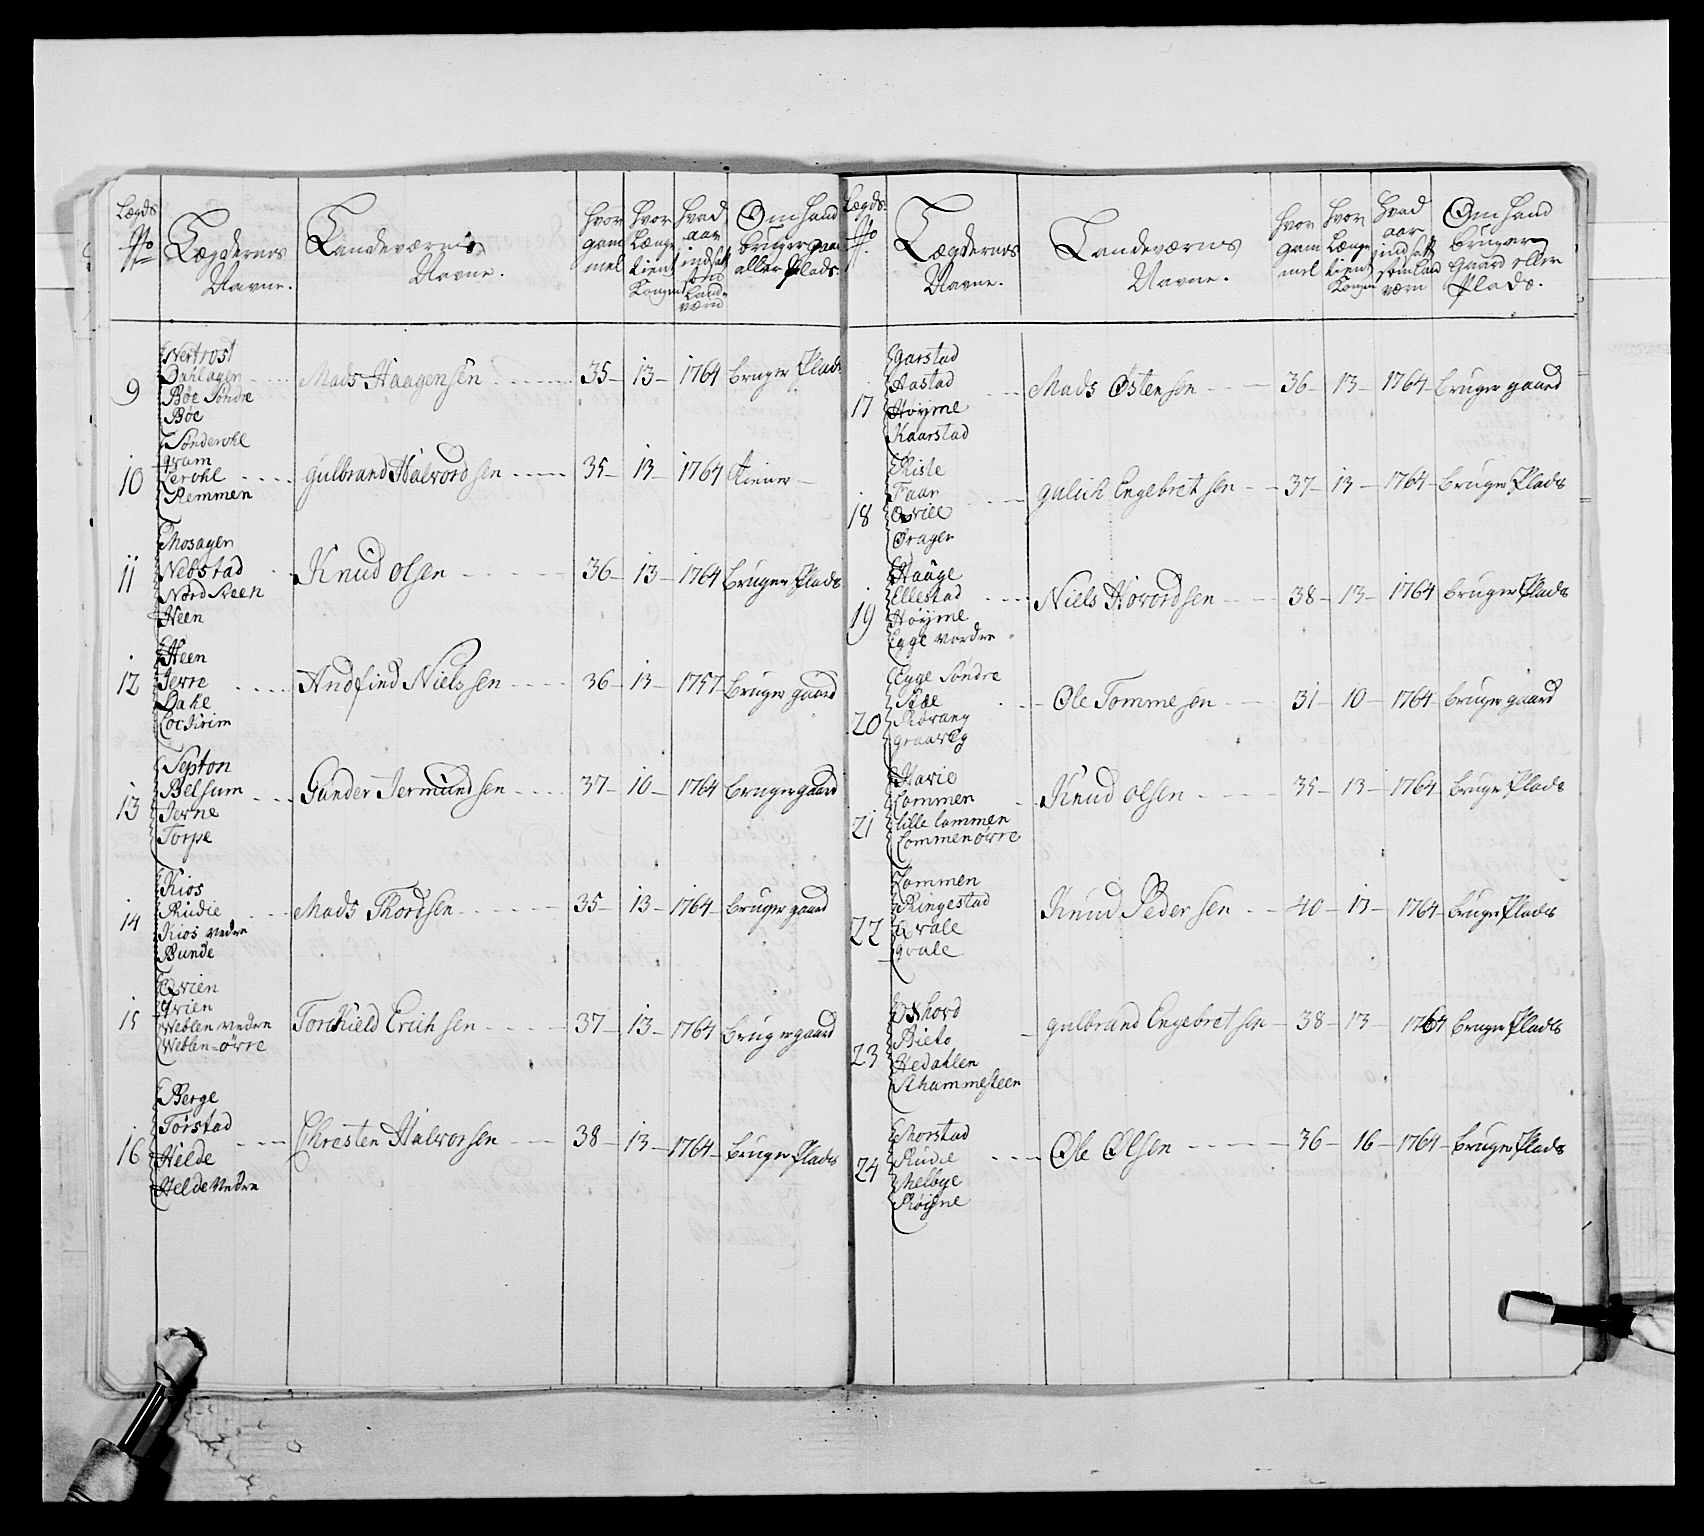 Lægds No
Lægdernes Navne.
Landeværnis Navne.
hvor gam mel
hvor Længe tient Kongen
hvad aar indsat som Land= værn
Om hand bruger gaard eller Plads.
9
Nertrost
Dahlagen
Bøe Søndre
Bøe
Mads Haagensen 35 13 1764 bruger Plads
10
Sønderohl
qvam
Lerohl
Remmen
gulbrand Halvordsen 35 13 1764 tiener
11
Thosagen
Nebstad
Nord Skeen
Heen
Knud olsen 36 13 1764 bruger Plads
12
Heen
Jerre
Dake
Lockrim
Andfind Nielssen 36 13 1757 bruger gaard
13
Septon
Belsum
Jerne
Torpe
Gunder Jermundsen 37 10 1764 bruger gaard
14
Kios
Rudie
Kios nedre
Bunde
Mads Thordsen 35 13 1764 bruger gaard
15
Qvien
qvien
Weblen nedre
Weblen øvre
Torchield Erichsen 37 13 1764 bruger gaard
16
Berge
Torstad
Helde
Helde Nedre
Christen Halvorsen 38 13 1764 bruger Plads
Lægds No
Lægdernes Navne.
Landeværnis Navne.
hvor gam mel
hvor Længe tient Kongen
hvad aar indsatt som Land værn
Om hand bruger Gaard eller Plads.
17
Garstad
Aastad
Høyme
Kaarstad
Mads Østensen 36 13 1764 bruger gaard
18
Riste
Faar
Qville
Dragen
gulich Engebretsen 37 13 1764 bruger Plads
19
Hauge
Ellestad
Høyme
Egge nordre
Niels Hovordsen 38 13 1764 bruger Plads
20
Egge Søndre
Røvang
Ole Tommesen 31 10 1764 bruger gaard
21
Havie
Lommen
lille Lommen
Lommen øvre
Knud olsen 35 13 1764 bruger Plads
22
Lommen
Ringestad
Qvale
qvale
Knud Pedersen 40 13 1764 bruger Plads
23
Oxhovd
Rieto
Hedahlen
Skammesteen
gulbrand Engebretsen 38 13 1764 bruger Plads
24
Thorstad
Rudie
Melbye
Røyne
Ole Olsen 36 16 1764 bruger Plads